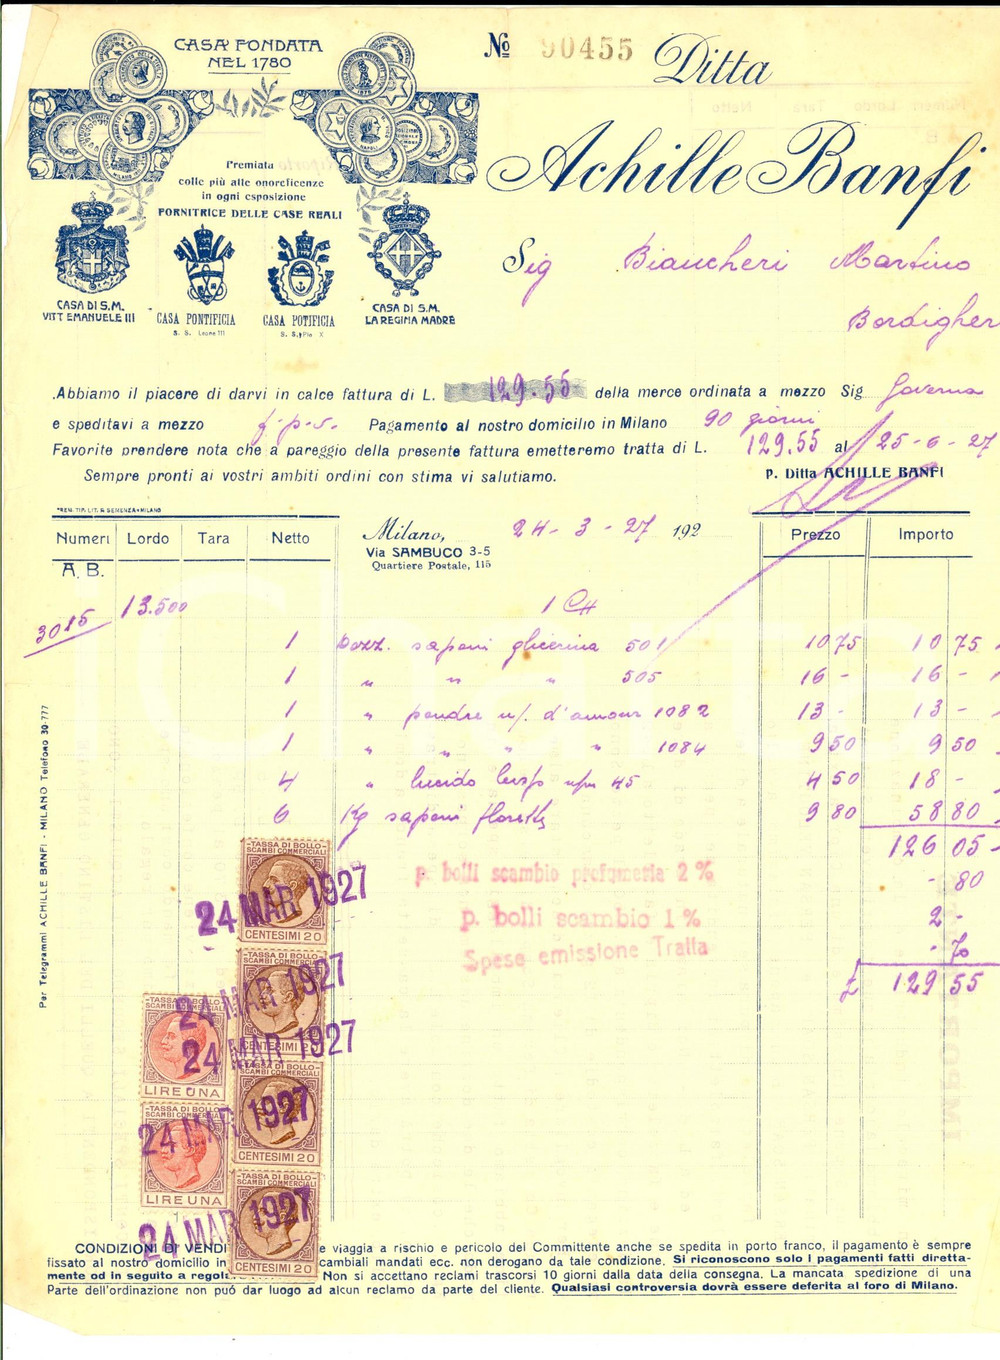 CASA FONDATA
NEL 1780
Nº 90455
Ditta
Achille Banfi
Premiata
colle più alte onoreficenze
in ogni esposizione
FORNITRICE DELLE CASE REALI
CASA DI S.M.
VITT EMANUELE III
CASA PONTIFICIA
S. S. Leone III
CASA POTIFICIA
S. S. Pio X
CASA DI S.M.
LA REGINA MADRE
Sig Biancheri Martino
Bordigher
Abbiamo il piacere di darvi in calce fattura di L. 129.55 della merce ordinata a mezzo Sig
e speditavi a mezzo f.p.s. Pagamento al nostro domicilio in Milano 90 giorni
Favorite prendere nota che a pareggio della presente fattura emetteremo tratta di L. 129.55 al 25-6-27
Sempre pronti ai vostri ambiti ordini con stima vi salutiamo. P. Ditta ACHILLE BANFI
Milano, 24-3-27 192
Via SAMBUCO 3-5
Quartiere Postale, 115
Numeri Lordo Tara Netto Prezzo Importo
A. B.
3015 13.500 1 CH
1 Dozz. saponi glicerina 501 10 75 10 75
1 „ „ „ 505 16 - 16 -
1 „ poudre n/. d'amour 1082 13 - 13 -
1 „ „ „ „ 1084 9 50 9 50
4 „ lucido 45 4 50 18 -
6 Kg saponi 9 80 58 80
126 05
p. bolli scambio profumeria 2 % - 80
p. bolli scambio 1 % 2 -
Spese emissione Tratta - 70
£ 129 55
Per Telegrammi ACHILLE BANFI - MILANO Telefono 30-777
-TASSA DI BOLLO-
SCAMBI COMMERCIALI
CENTESIMI 20
24 MAR 1927
-TASSA DI BOLLO-
SCAMBI COMMERCIALI
CENTESIMI 20
24 MAR 1927
-TASSA DI BOLLO-
SCAMBI COMMERCIALI
LIRE UNA
24 MAR 1927
-TASSA DI BOLLO-
SCAMBI COMMERCIALI
CENTESIMI 20
24 MAR 1927
-TASSA DI BOLLO-
SCAMBI COMMERCIALI
LIRE UNA
-TASSA DI BOLLO-
SCAMBI COMMERCIALI
CENTESIMI 20
24 MAR 1927
CONDIZIONI DI VENDI e viaggia a rischio e pericolo del Committente anche se spedita in porto franco, il pagamento è sempre
fissato al nostro domicilio in cambiali mandati ecc. non derogano da tale condizione. Si riconoscono solo i pagamenti fatti diretta-
mente od in seguito a regola Non si accettano reclami trascorsi 10 giorni dalla data della consegna. La mancata spedizione di una
Parte dell'ordinazione non può dar luogo ad alcun reclamo da parte del cliente. Qualsiasi controversia dovrà essere deferita al foro di Milano.